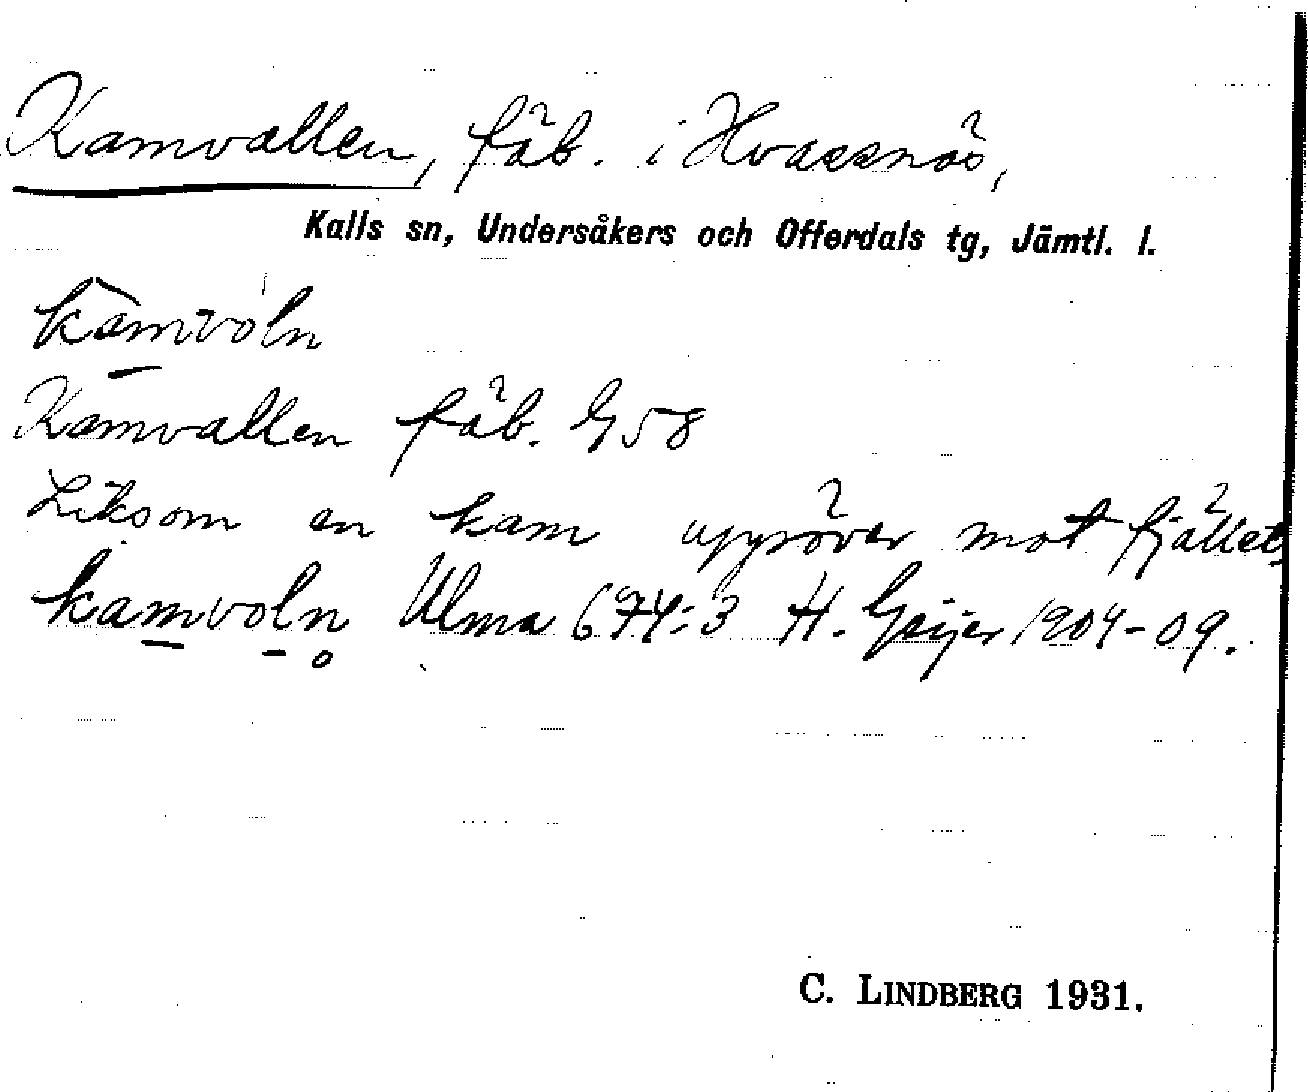 Kamvallen, fäb. i Hvassnäs,
Kalls sn, Undersåkers och Offerdals tg, Jämtl. l.
kamvoln
Kamvallen fäb. G 58
Liksom en kam uppöver mot fjället
kamvoln Ulma 674:3 H. Geijer 1904-09.
C. LINDBERG 1931.